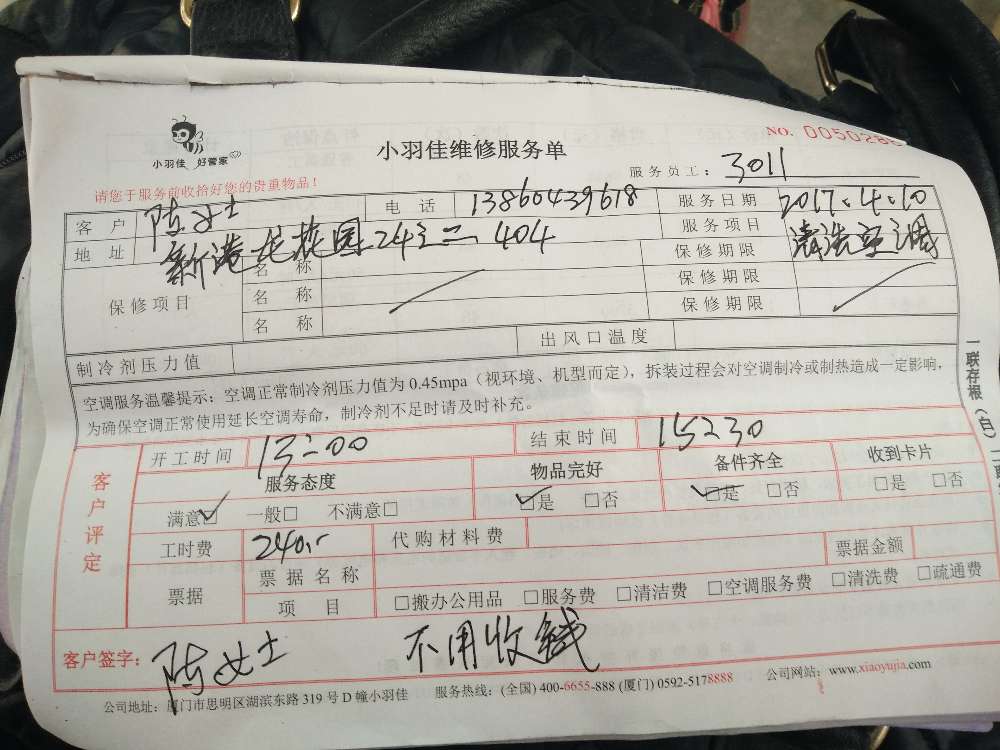 小羽佳 好管家
小羽佳维修服务单
NO. 005028
请您于服务前收拾好您的贵重物品！
服务员工：3011
客户 陈女士 电话 13860439678 服务日期 2017.4.10
地址 新港龙花园24之二、404 服务项目 清洗空调
保修项目 名称 保修期限
名称 保修期限
名称 保修期限
制冷剂压力值 出风口温度
空调服务温馨提示：空调正常制冷剂压力值为0.45mpa（视环境、机型而定），拆装过程会对空调制冷或制热造成一定影响，
为确保空调正常使用延长空调寿命，制冷剂不足时请及时补充。
一联存根（白）二联
客户评定
开工时间 13:00 结束时间 15:30
服务态度 物品完好 备件齐全 收到卡片
满意☑ 一般□ 不满意□ ☑是 □否 ☑是 □否 □是 □否
工时费 240.- 代购材料费 票据金额
票据 票据名称
项目 □搬办公用品 □服务费 □清洁费 □空调服务费 □清洗费 □疏通费
客户签字：陈女士 不用收钱
公司地址：厦门市思明区湖滨东路319号D幢小羽佳 服务热线：(全国) 400-6655-888 (厦门) 0592-5178888 公司网站：www.xiaoyujia.com